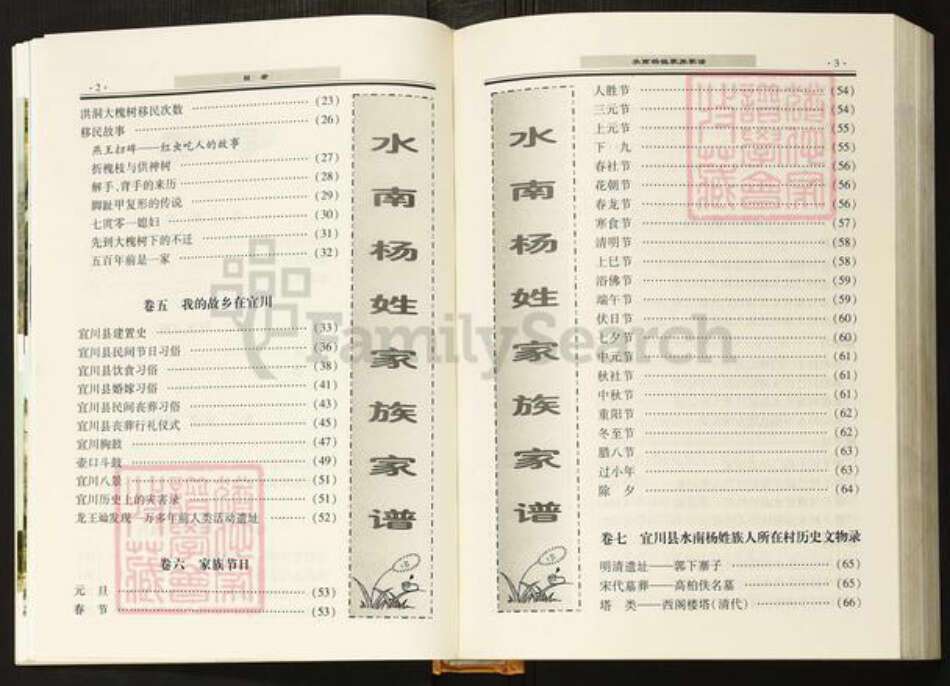 ·2·
目录
洪洞大槐树移民次数 (23)
移民故事 (26)
燕王扫碑——红虫吃人的故事
折槐枝与供神树 (27)
解手、背手的来历 (28)
脚趾甲复形的传说 (29)
七霄零一媳妇 (30)
先到大槐树下的不迁 (31)
五百年前是一家 (32)
卷五 我的故乡在宜川
宜川县建置史 (33)
宜川县民间节日习俗 (36)
宜川县饮食习俗 (38)
宜川县婚嫁习俗 (41)
宜川县民间丧葬习俗 (43)
宜川县丧葬行礼仪式 (45)
宜川胸鼓 (47)
壶口斗鼓 (49)
宜川八景 (51)
宜川历史上的灾害录 (51)
龙王辿发现一万多年前人类活动遗址 (52)
卷六 家族节日
元旦 (53)
春节 (53)
水南杨姓家族家谱
水南杨姓家族家谱
·3·
水南杨姓家族家谱
人胜节 (54)
三元节 (54)
上元节 (55)
下九 (55)
春社节 (56)
花朝节 (56)
春龙节 (56)
寒食节 (57)
清明节 (58)
上巳节 (58)
浴佛节 (59)
端午节 (59)
伏日节 (60)
七夕节 (60)
中元节 (61)
秋社节 (61)
中秋节 (61)
重阳节 (62)
冬至节 (62)
腊八节 (63)
过小年 (63)
除夕 (64)
卷七 宜川县水南杨姓族人所在村历史文物录
明清遗址——郭下寨子 (65)
宋代墓葬——高柏佚名墓 (65)
塔类——西阁楼塔(清代) (66)
FamilySearch